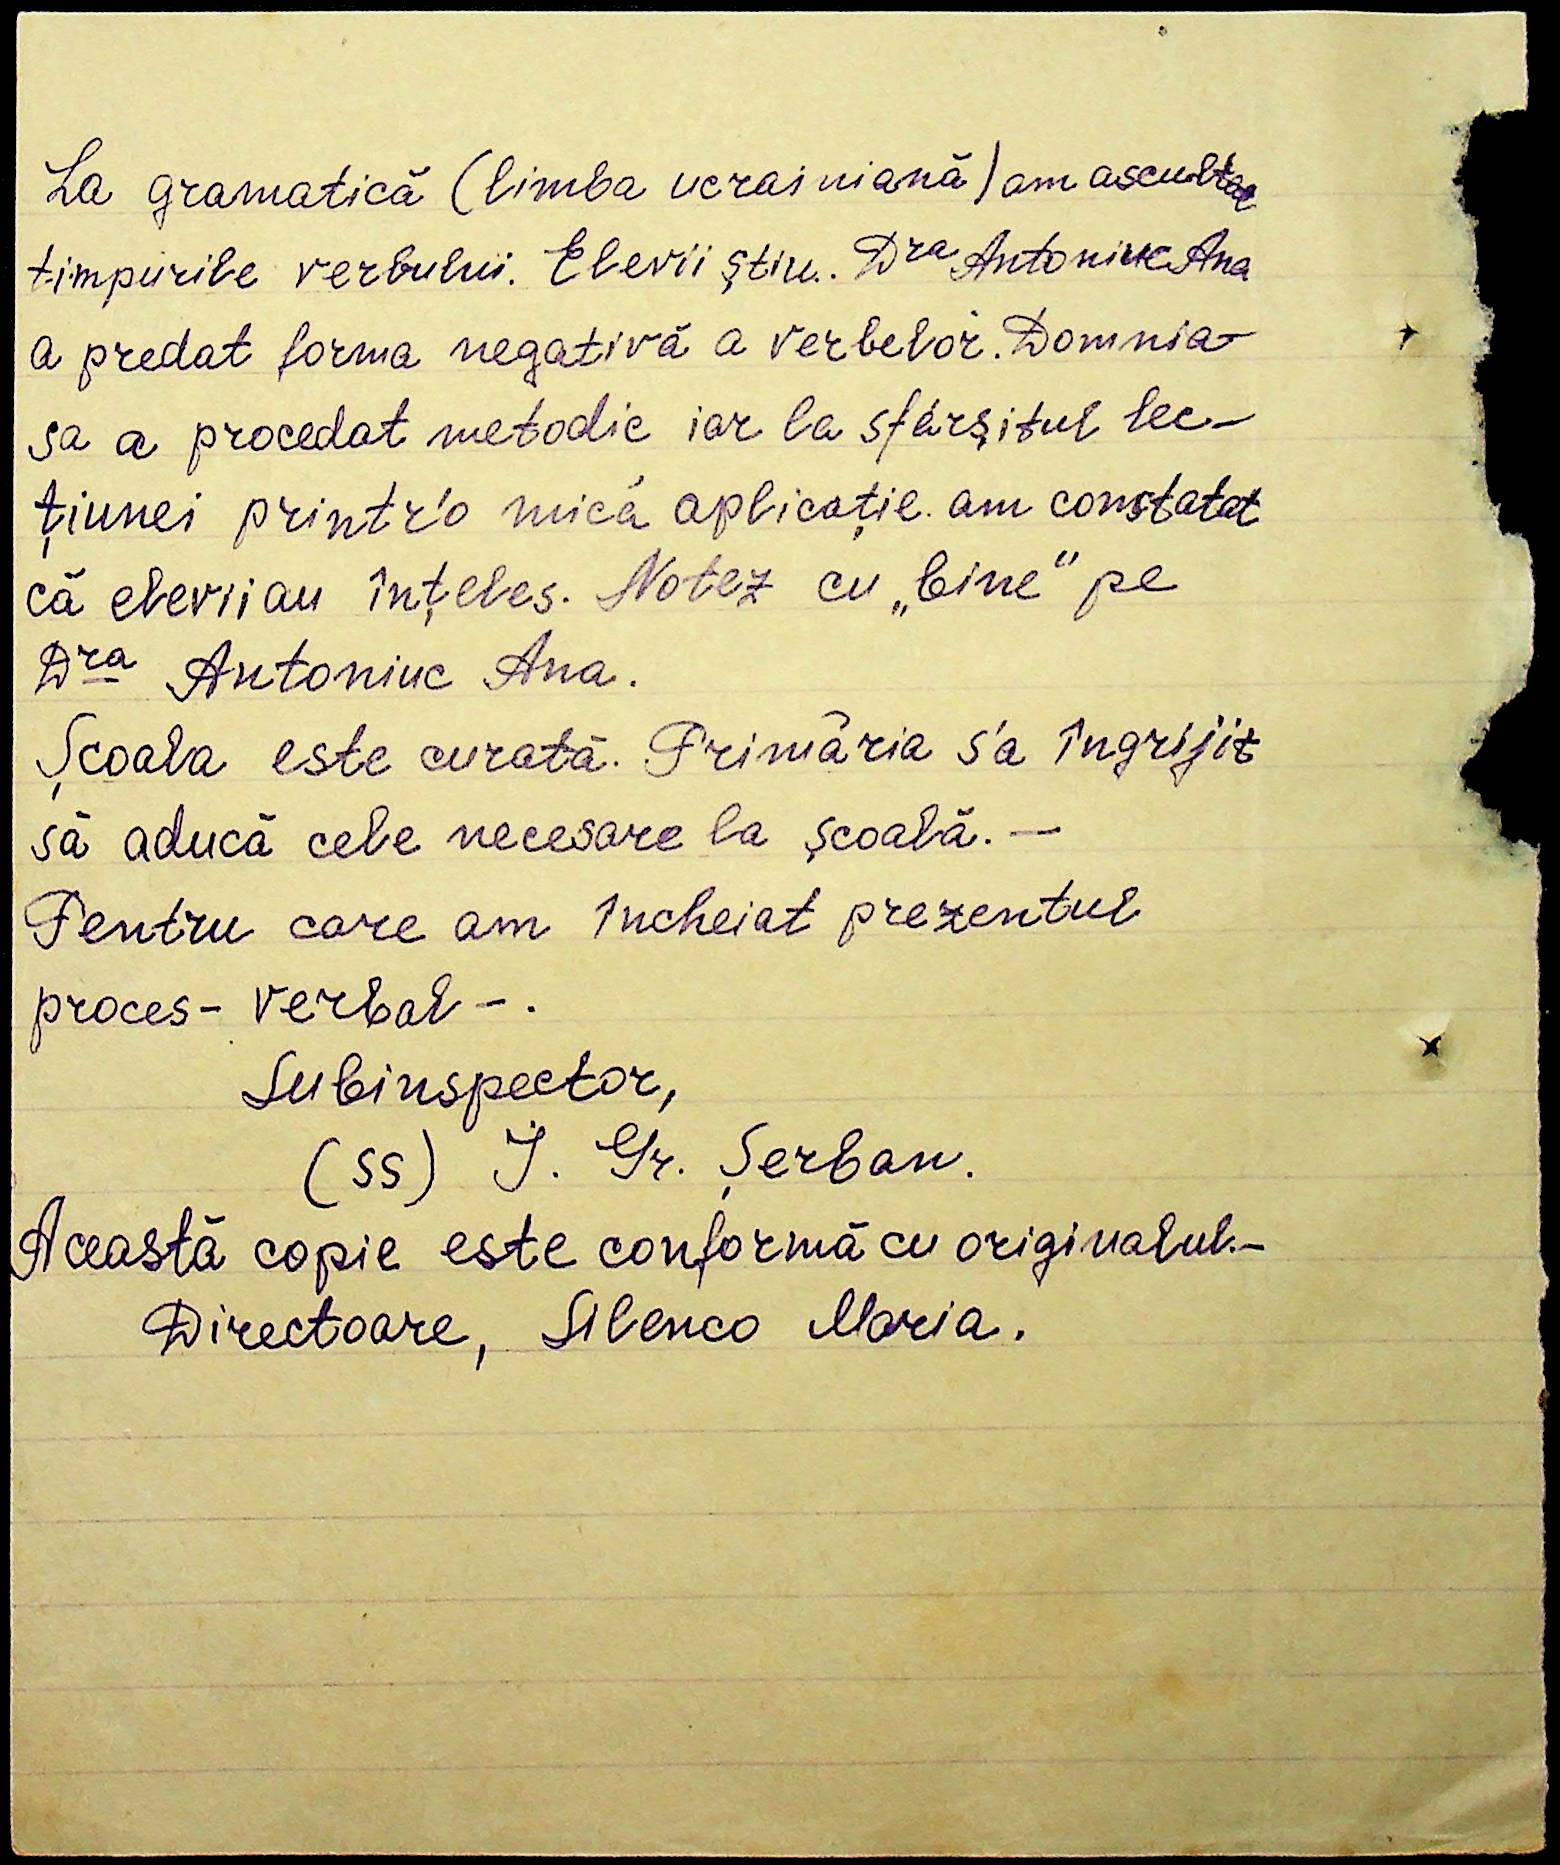 La gramatică (limba ucrainiană) am ascultat
timpurile verbului. Elevii ştiu. Dra Antoniuc Ana
a predat forma negativă a verbelor. Domnia-
sa a procedat metodic iar la sfârşitul lec-
ţiunei printr'o mică aplicaţie am constatat
că elevii au înţeles. Notez cu „bine" pe
Dra Antoniuc Ana.
Şcoala este curată. Primăria s'a îngrijit
să aducă cele necesare la şcoală. —
Pentru care am încheiat prezentul
proces- verbal -.
Subinspector,
(ss) I. Gr. Şerban.
Această copie este conformă cu originalul.-
Directoare, Silenco Maria.